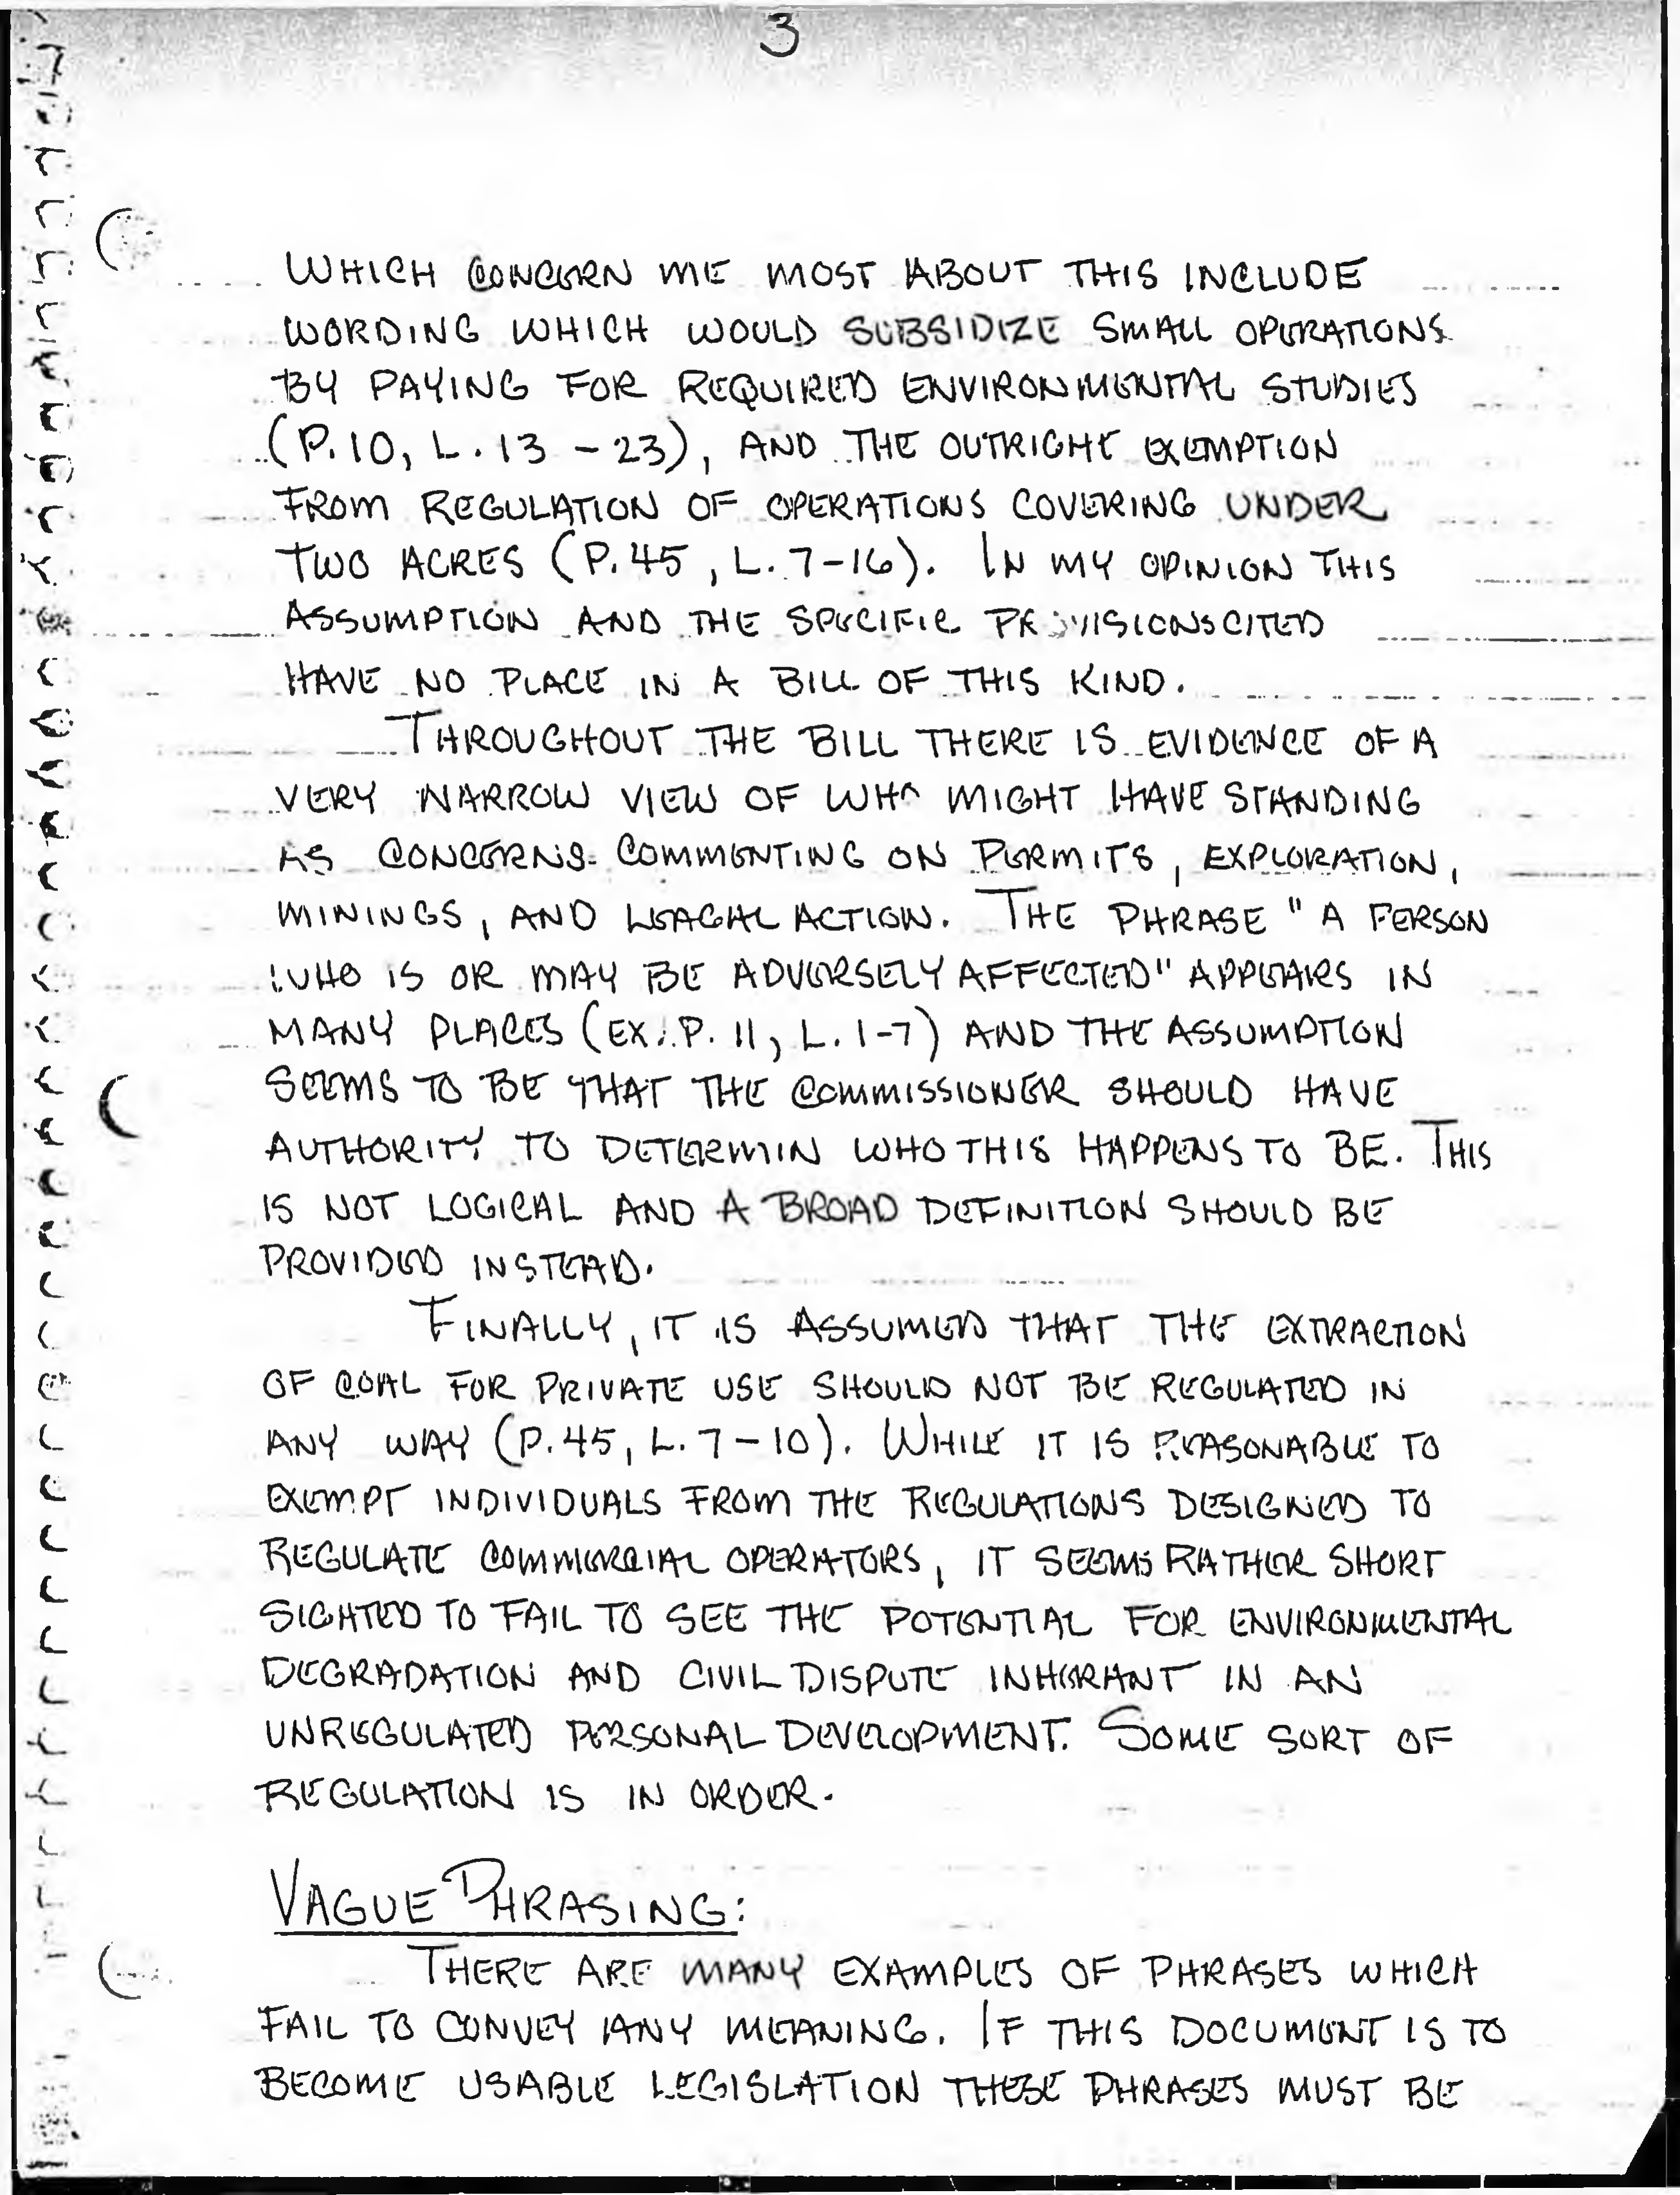 3
WHICH CONCERN ME MOST ABOUT THIS INCLUDE
WORDING WHICH WOULD SUBSIDIZE SMALL OPERATIONS
BY PAYING FOR REQUIRED ENVIRONMENTAL STUDIES
(P.10, L.13-23), AND THE OUTRIGHT EXEMPTION
FROM REGULATION OF OPERATIONS COVERING UNDER
TWO ACRES (P.45, L.7-16). IN MY OPINION THIS
ASSUMPTION AND THE SPECIFIC PROVISIONS CITED
HAVE NO PLACE IN A BILL OF THIS KIND.
THROUGHOUT THE BILL THERE IS EVIDENCE OF A
VERY NARROW VIEW OF WHO MIGHT HAVE STANDING
AS CONCERNS COMMENTING ON PERMITS, EXPLORATION,
MININGS, AND LEAGAL ACTION. THE PHRASE "A PERSON
WHO IS OR MAY BE ADVERSELY AFFECTED" APPEARS IN
MANY PLACES (EX. P. 11, L. 1-7) AND THE ASSUMPTION
SEEMS TO BE THAT THE COMMISSIONER SHOULD HAVE
AUTHORITY TO DETERMIN WHO THIS HAPPENS TO BE. THIS
IS NOT LOGICAL AND A BROAD DEFINITION SHOULD BE
PROVIDED INSTEAD.
FINALLY, IT IS ASSUMED THAT THE EXTRACTION
OF COAL FOR PRIVATE USE SHOULD NOT BE REGULATED IN
ANY WAY (P.45, L.7-10). WHILE IT IS REASONABLE TO
EXEMPT INDIVIDUALS FROM THE REGULATIONS DESIGNED TO
REGULATE COMMERCIAL OPERATORS, IT SEEMS RATHER SHORT
SIGHTED TO FAIL TO SEE THE POTENTIAL FOR ENVIRONMENTAL
DEGRADATION AND CIVIL DISPUTE INHERANT IN AN
UNREGULATED PERSONAL DEVELOPMENT. SOME SORT OF
REGULATION IS IN ORDER.
VAGUE PHRASING:
THERE ARE MANY EXAMPLES OF PHRASES WHICH
FAIL TO CONVEY ANY MEANING. IF THIS DOCUMENT IS TO
BECOME USABLE LEGISLATION THESE PHRASES MUST BE